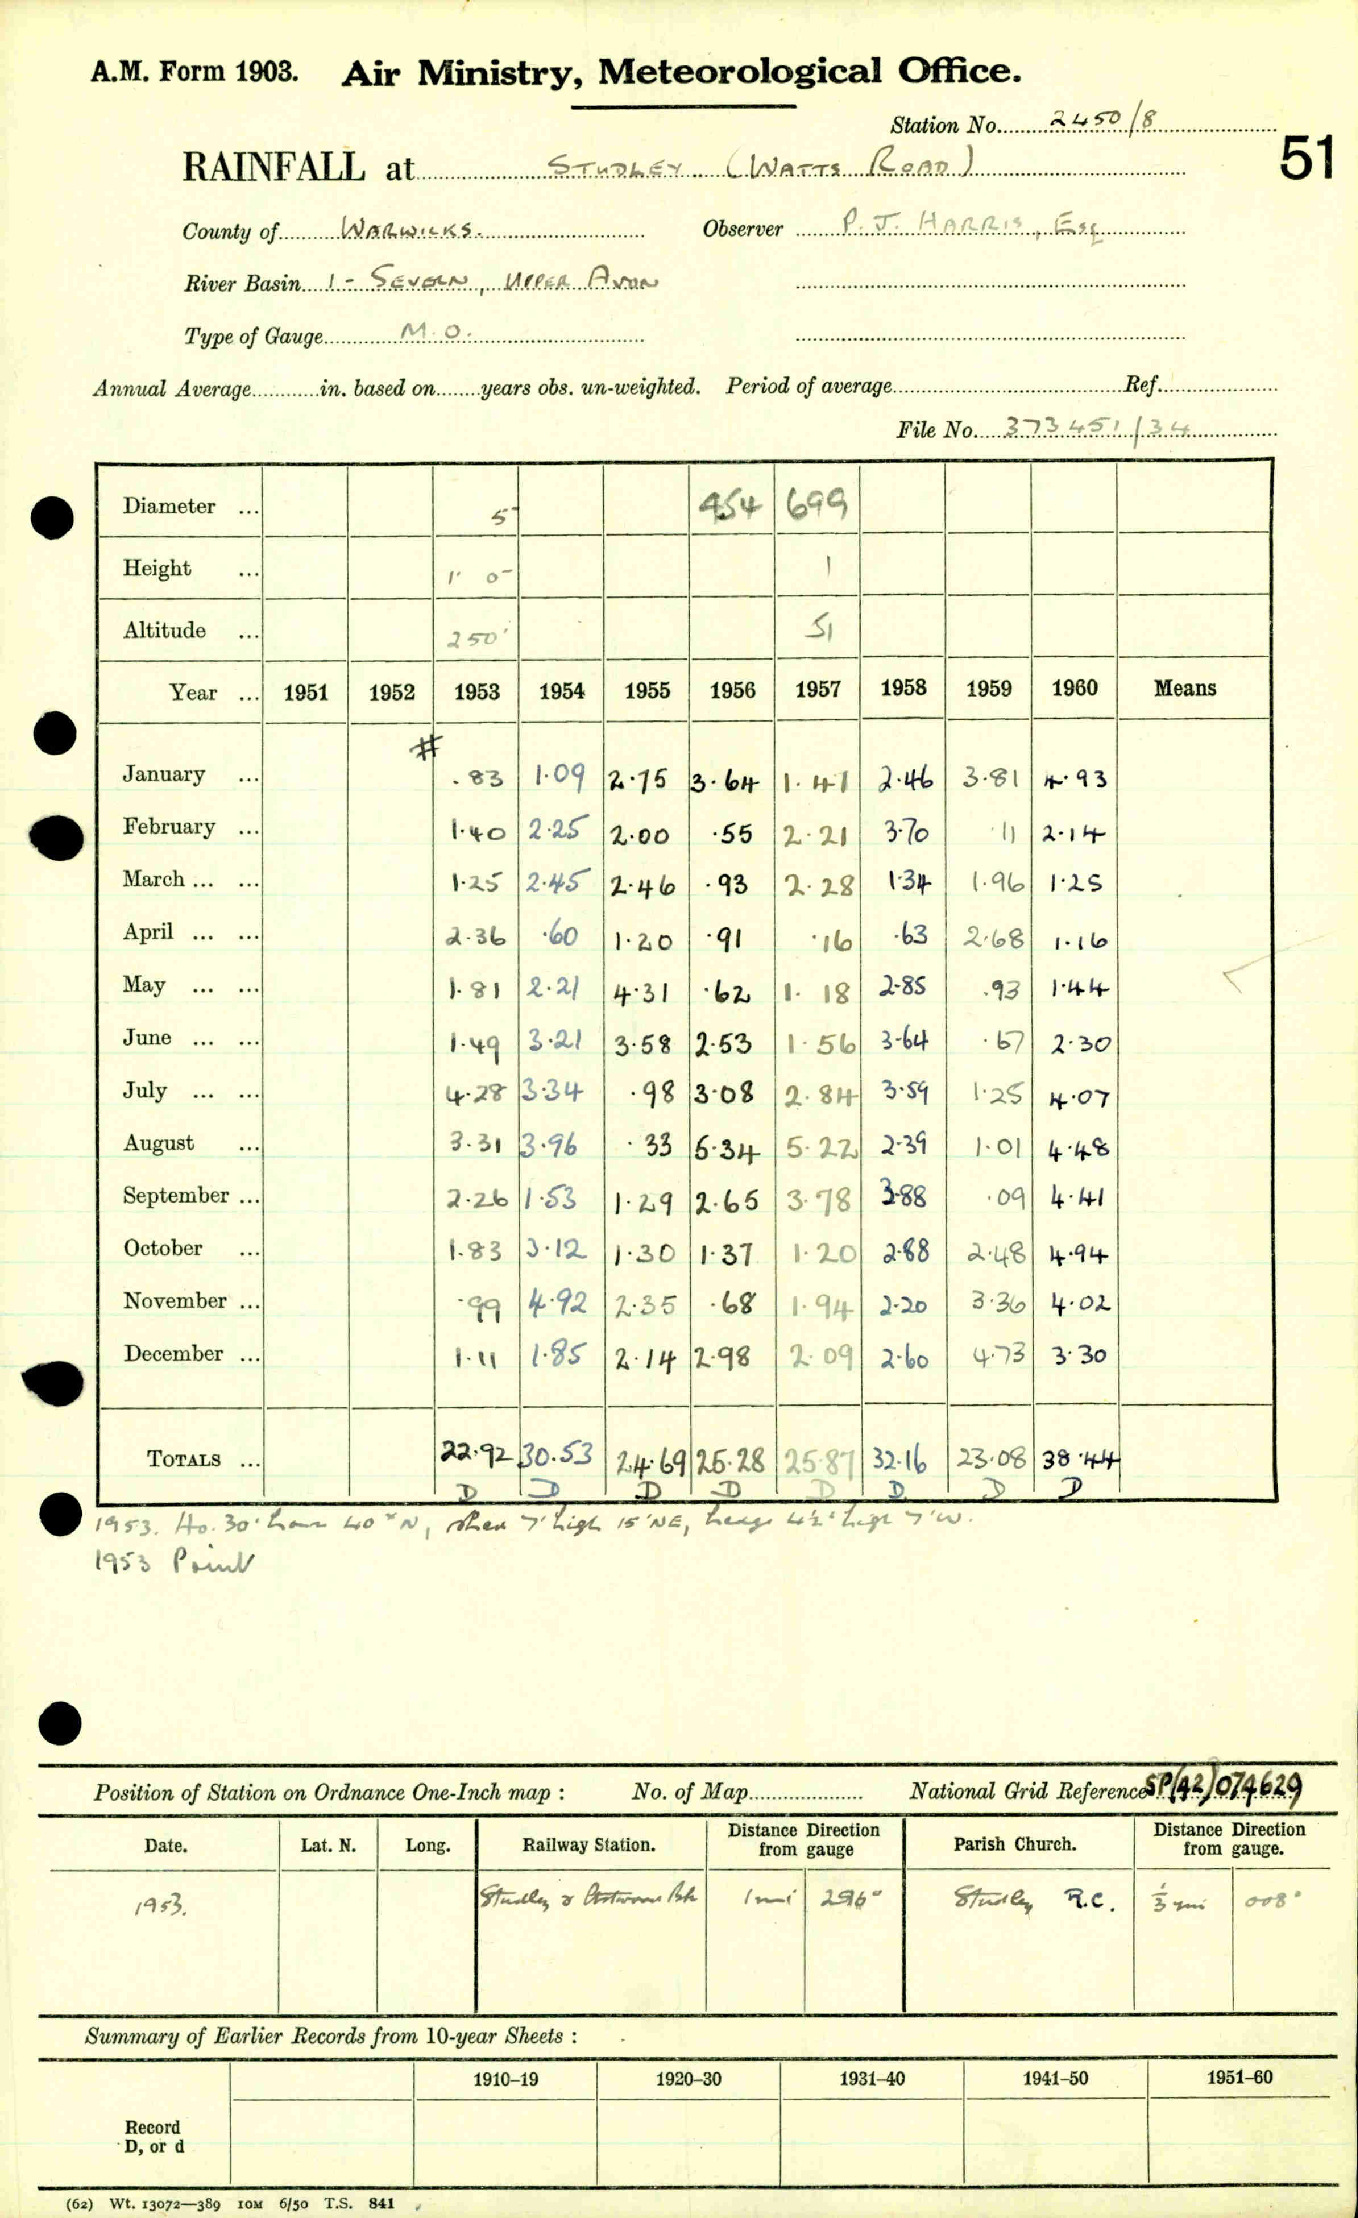 A.M. Form 1903. Air Ministry, Meteorological Office.
Station No. 2450/8
51
RAINFALL at STUDLEY (WATTS ROAD)
County of WARWICKS. Observer P. J. HARRIS, Esq
River Basin 1 - SEVERN, UPPER AVON
Type of Gauge M.O.
Annual Average in. based on years obs. un-weighted. Period of average Ref.
File No. 373451/34
Diameter ... 5 454 699
Height ... 1' 0" 1
Altitude ... 250' 51
Year ... 1951 1952 1953 1954 1955 1956 1957 1958 1959 1960 Means
#
January ... .83 1.09 2.75 3.64 1.41 2.46 3.81 4.93
February ... 1.40 2.25 2.00 .55 2.21 3.70 .11 2.14
March ... ... 1.25 2.45 2.46 .93 2.28 1.34 1.96 1.25
April ... ... 2.36 .60 1.20 .91 .16 .63 2.68 1.16
May ... ... 1.81 2.21 4.31 .62 1.18 2.85 .93 1.44
June ... ... 1.49 3.21 3.58 2.53 1.56 3.64 .67 2.30
July ... ... 4.28 3.34 .98 3.08 2.84 3.59 1.25 4.07
August ... 3.31 3.96 .33 5.34 5.22 2.39 1.01 4.48
September ... 2.26 1.53 1.29 2.65 3.78 3.88 .09 4.41
October ... 1.83 3.12 1.30 1.37 1.20 2.88 2.48 4.94
November ... .99 4.92 2.35 .68 1.94 2.20 3.36 4.02
December ... 1.11 1.85 2.14 2.98 2.09 2.60 4.73 3.30
TOTALS ... 22.92 30.53 24.69 25.28 25.87 32.16 23.08 38.44
D D D D D D D D
1953. Ho. 30' 40° N, shed 7' high 15' NE, hedge 4½' high 7' W.
1953 Point
Position of Station on Ordnance One-Inch map : No. of Map National Grid Reference SP(42)074629
Date. Lat. N. Long. Railway Station. Distance from Direction gauge Parish Church. Distance from Direction gauge.
1953. Studley & Astwood Bk 1 mi 296° Studley R.C. ⅓ mi 008°
Summary of Earlier Records from 10-year Sheets :
1910–19 1920–30 1931–40 1941–50 1951–60
Record
D, or d
(62) Wt. 13072—389 10M 6/50 T.S. 841